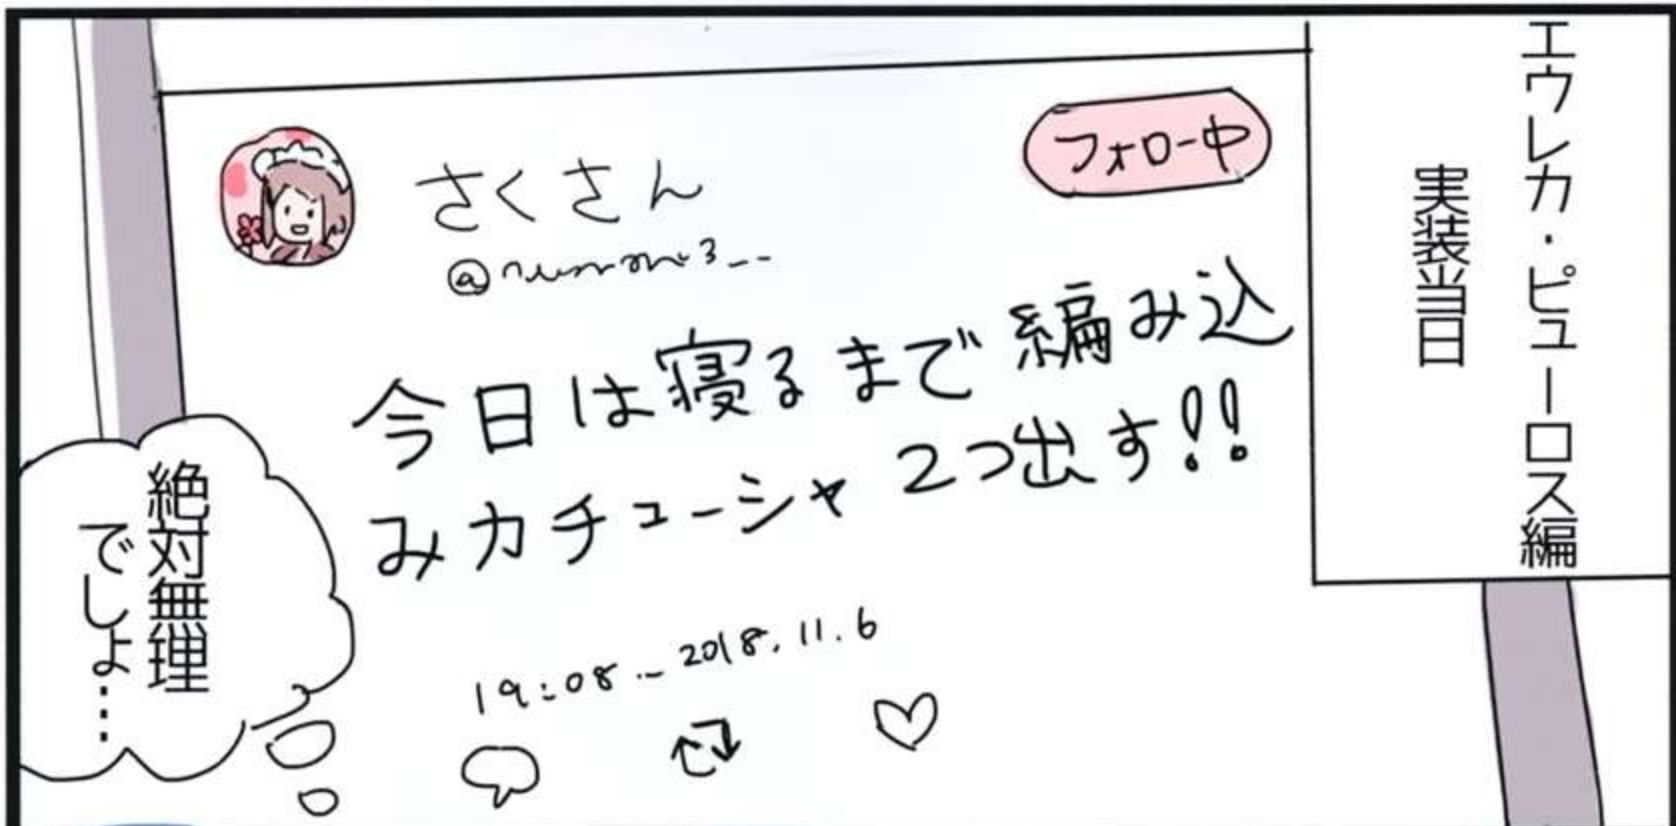 エウレカ・ピューロス編
実装当日
さくさん
フォロー中
今日は寝るまで編み込
みカチューシャ2つ出す!!
19:08 2018.11.6
絶対無理
でしょ……